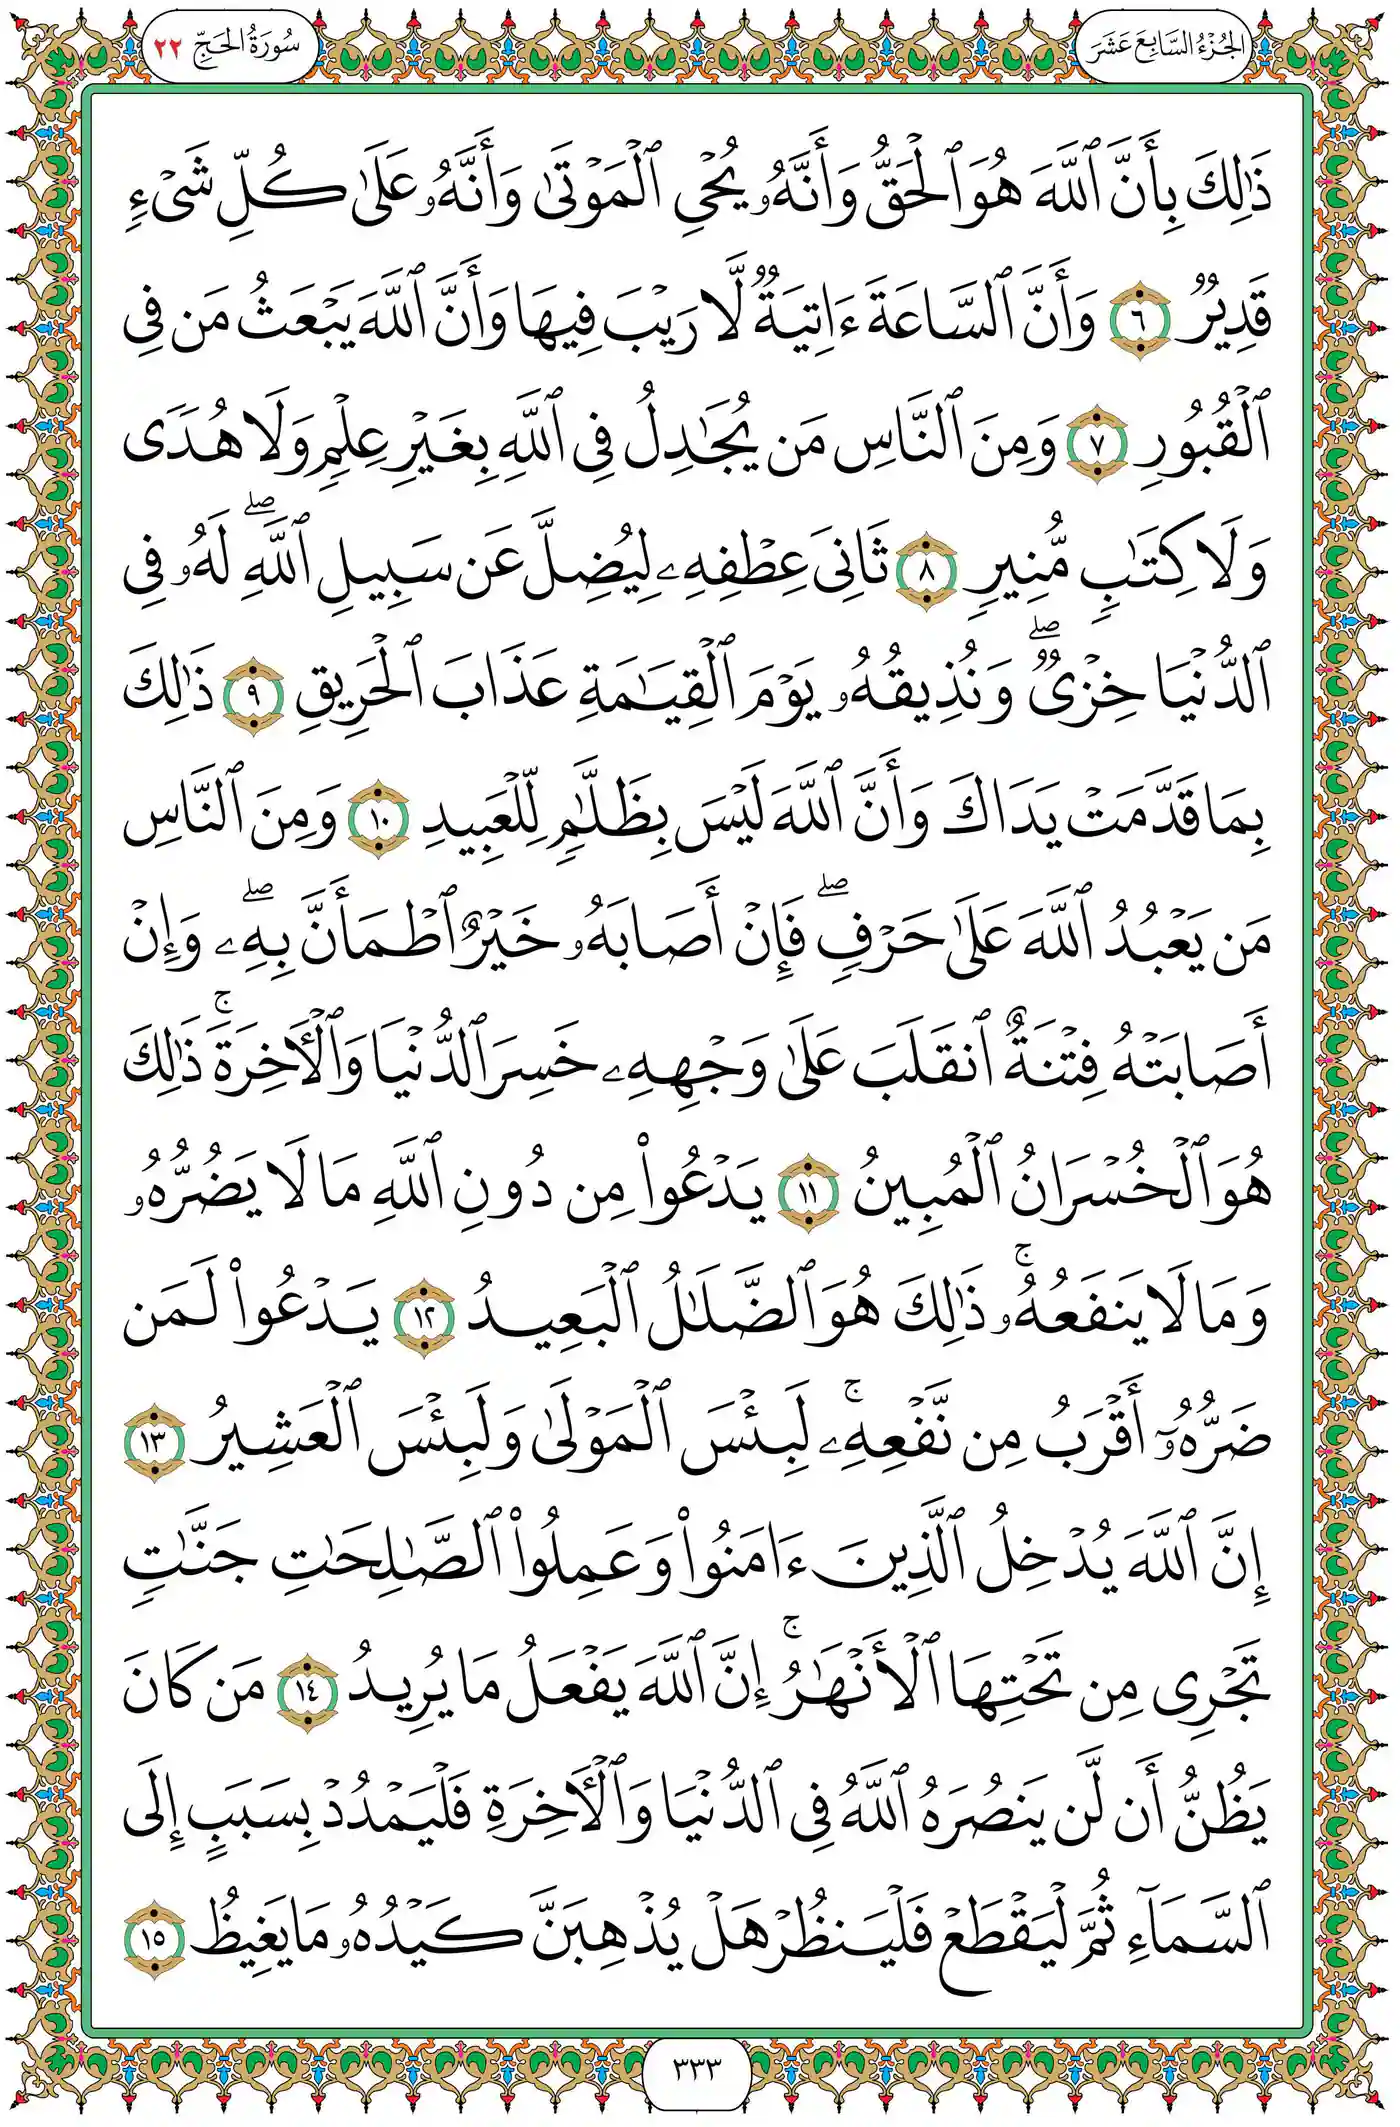 الجُزْءُ السَّابِعَ عَشَرَ
سُورَةُ الحَجِّ ٢٢
ذَٰلِكَ بِأَنَّ ٱللَّهَ هُوَ ٱلْحَقُّ وَأَنَّهُۥ يُحْىِ ٱلْمَوْتَىٰ وَأَنَّهُۥ عَلَىٰ كُلِّ شَىْءٍ
قَدِيرٌ ٦ وَأَنَّ ٱلسَّاعَةَ ءَاتِيَةٌ لَّا رَيْبَ فِيهَا وَأَنَّ ٱللَّهَ يَبْعَثُ مَن فِى
ٱلْقُبُورِ ٧ وَمِنَ ٱلنَّاسِ مَن يُجَٰدِلُ فِى ٱللَّهِ بِغَيْرِ عِلْمٍ وَلَا هُدًى
وَلَا كِتَٰبٍ مُّنِيرٍ ٨ ثَانِىَ عِطْفِهِۦ لِيُضِلَّ عَن سَبِيلِ ٱللَّهِ ۖ لَهُۥ فِى
ٱلدُّنْيَا خِزْىٌ ۖ وَنُذِيقُهُۥ يَوْمَ ٱلْقِيَٰمَةِ عَذَابَ ٱلْحَرِيقِ ٩ ذَٰلِكَ
بِمَا قَدَّمَتْ يَدَاكَ وَأَنَّ ٱللَّهَ لَيْسَ بِظَلَّٰمٍ لِّلْعَبِيدِ ١٠ وَمِنَ ٱلنَّاسِ
مَن يَعْبُدُ ٱللَّهَ عَلَىٰ حَرْفٍ ۖ فَإِنْ أَصَابَهُۥ خَيْرٌ ٱطْمَأَنَّ بِهِۦ ۖ وَإِنْ
أَصَابَتْهُ فِتْنَةٌ ٱنقَلَبَ عَلَىٰ وَجْهِهِۦ خَسِرَ ٱلدُّنْيَا وَٱلْءَاخِرَةَ ۚ ذَٰلِكَ
هُوَ ٱلْخُسْرَانُ ٱلْمُبِينُ ١١ يَدْعُوا۟ مِن دُونِ ٱللَّهِ مَا لَا يَضُرُّهُۥ
وَمَا لَا يَنفَعُهُۥ ۚ ذَٰلِكَ هُوَ ٱلضَّلَٰلُ ٱلْبَعِيدُ ١٢ يَدْعُوا۟ لَمَن
ضَرُّهُۥٓ أَقْرَبُ مِن نَّفْعِهِۦ ۚ لَبِئْسَ ٱلْمَوْلَىٰ وَلَبِئْسَ ٱلْعَشِيرُ ١٣
إِنَّ ٱللَّهَ يُدْخِلُ ٱلَّذِينَ ءَامَنُوا۟ وَعَمِلُوا۟ ٱلصَّٰلِحَٰتِ جَنَّٰتٍ
تَجْرِى مِن تَحْتِهَا ٱلْأَنْهَٰرُ ۚ إِنَّ ٱللَّهَ يَفْعَلُ مَا يُرِيدُ ١٤ مَن كَانَ
يَظُنُّ أَن لَّن يَنصُرَهُ ٱللَّهُ فِى ٱلدُّنْيَا وَٱلْءَاخِرَةِ فَلْيَمْدُدْ بِسَبَبٍ إِلَى
ٱلسَّمَآءِ ثُمَّ لْيَقْطَعْ فَلْيَنظُرْ هَلْ يُذْهِبَنَّ كَيْدُهُۥ مَا يَغِيظُ ١٥
٣٣٣